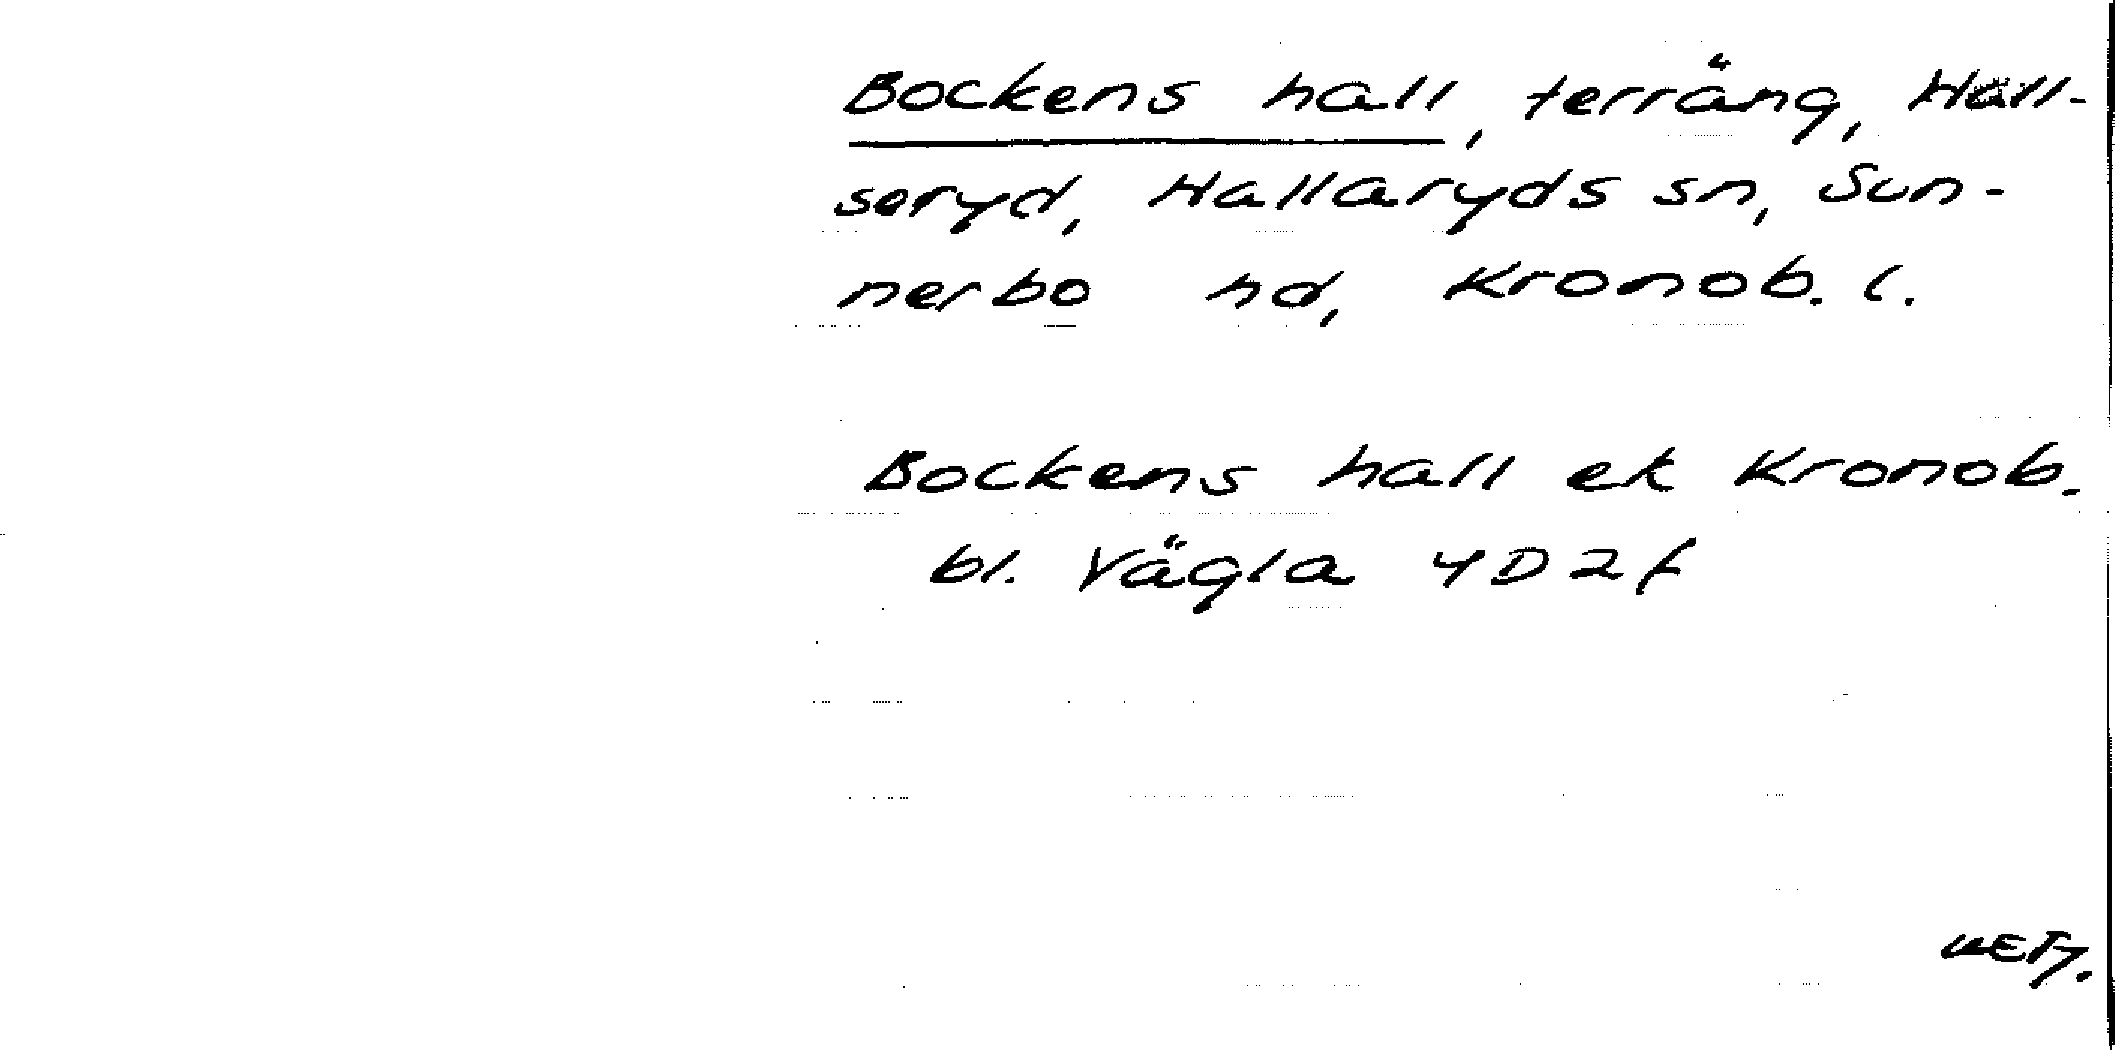 Bockens hall, terräng, Häll-
seryd, Hallaryds sn, Sun-
nerbo hd, Kronob. l.
Bockens hall ek Kronob.
bl. Vägla 4D2f